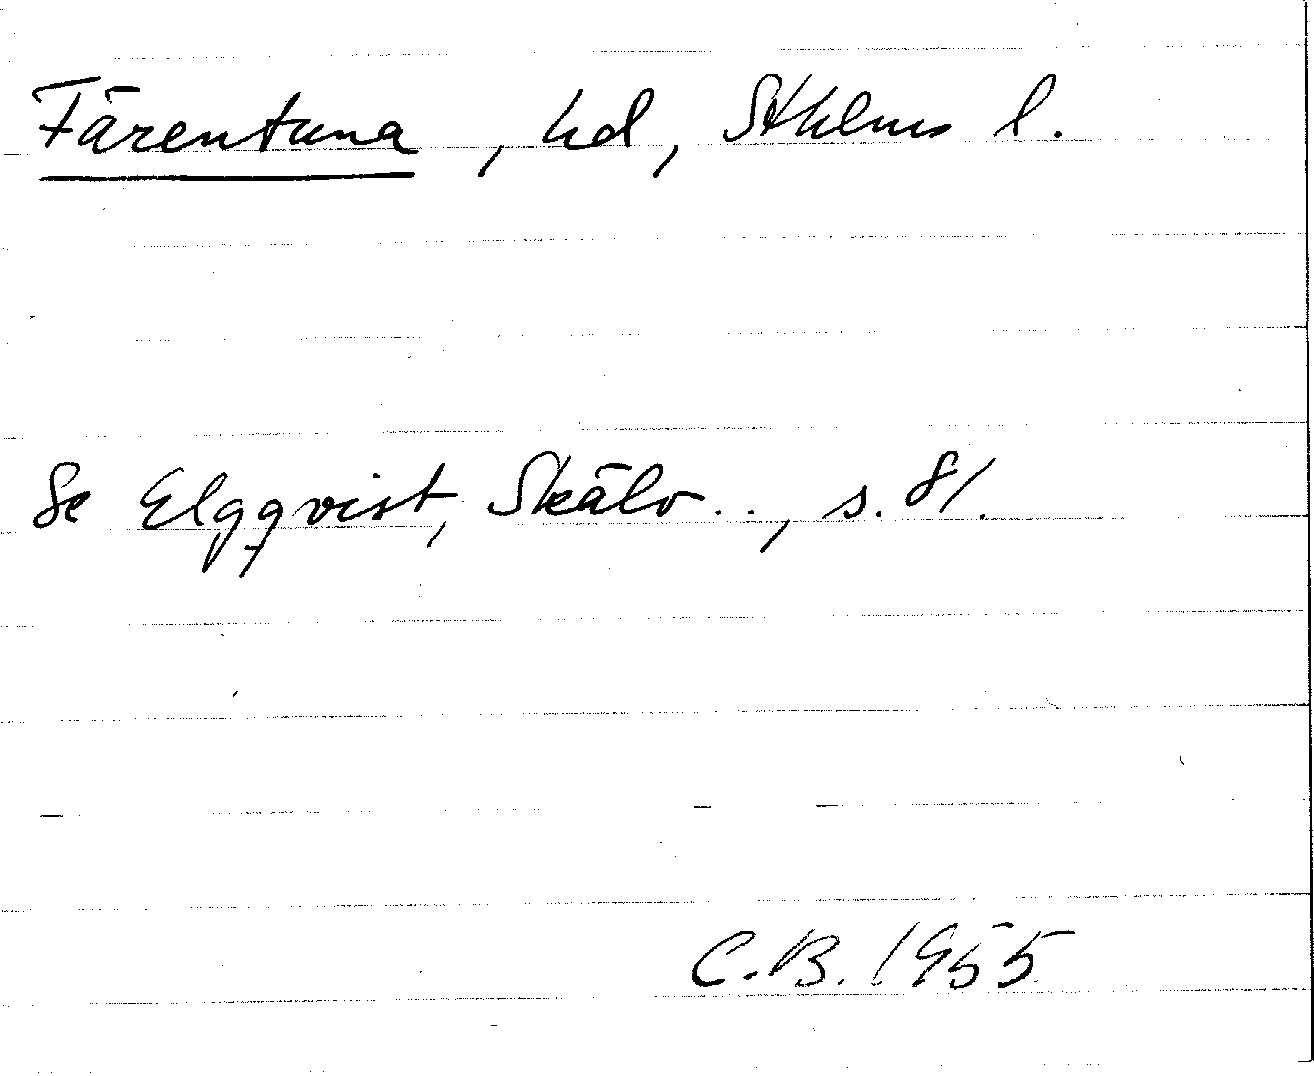 Färentuna, hd, Sthlms l.
Se Elgqvist, Skälv.., s. 81.
C.B. 1955